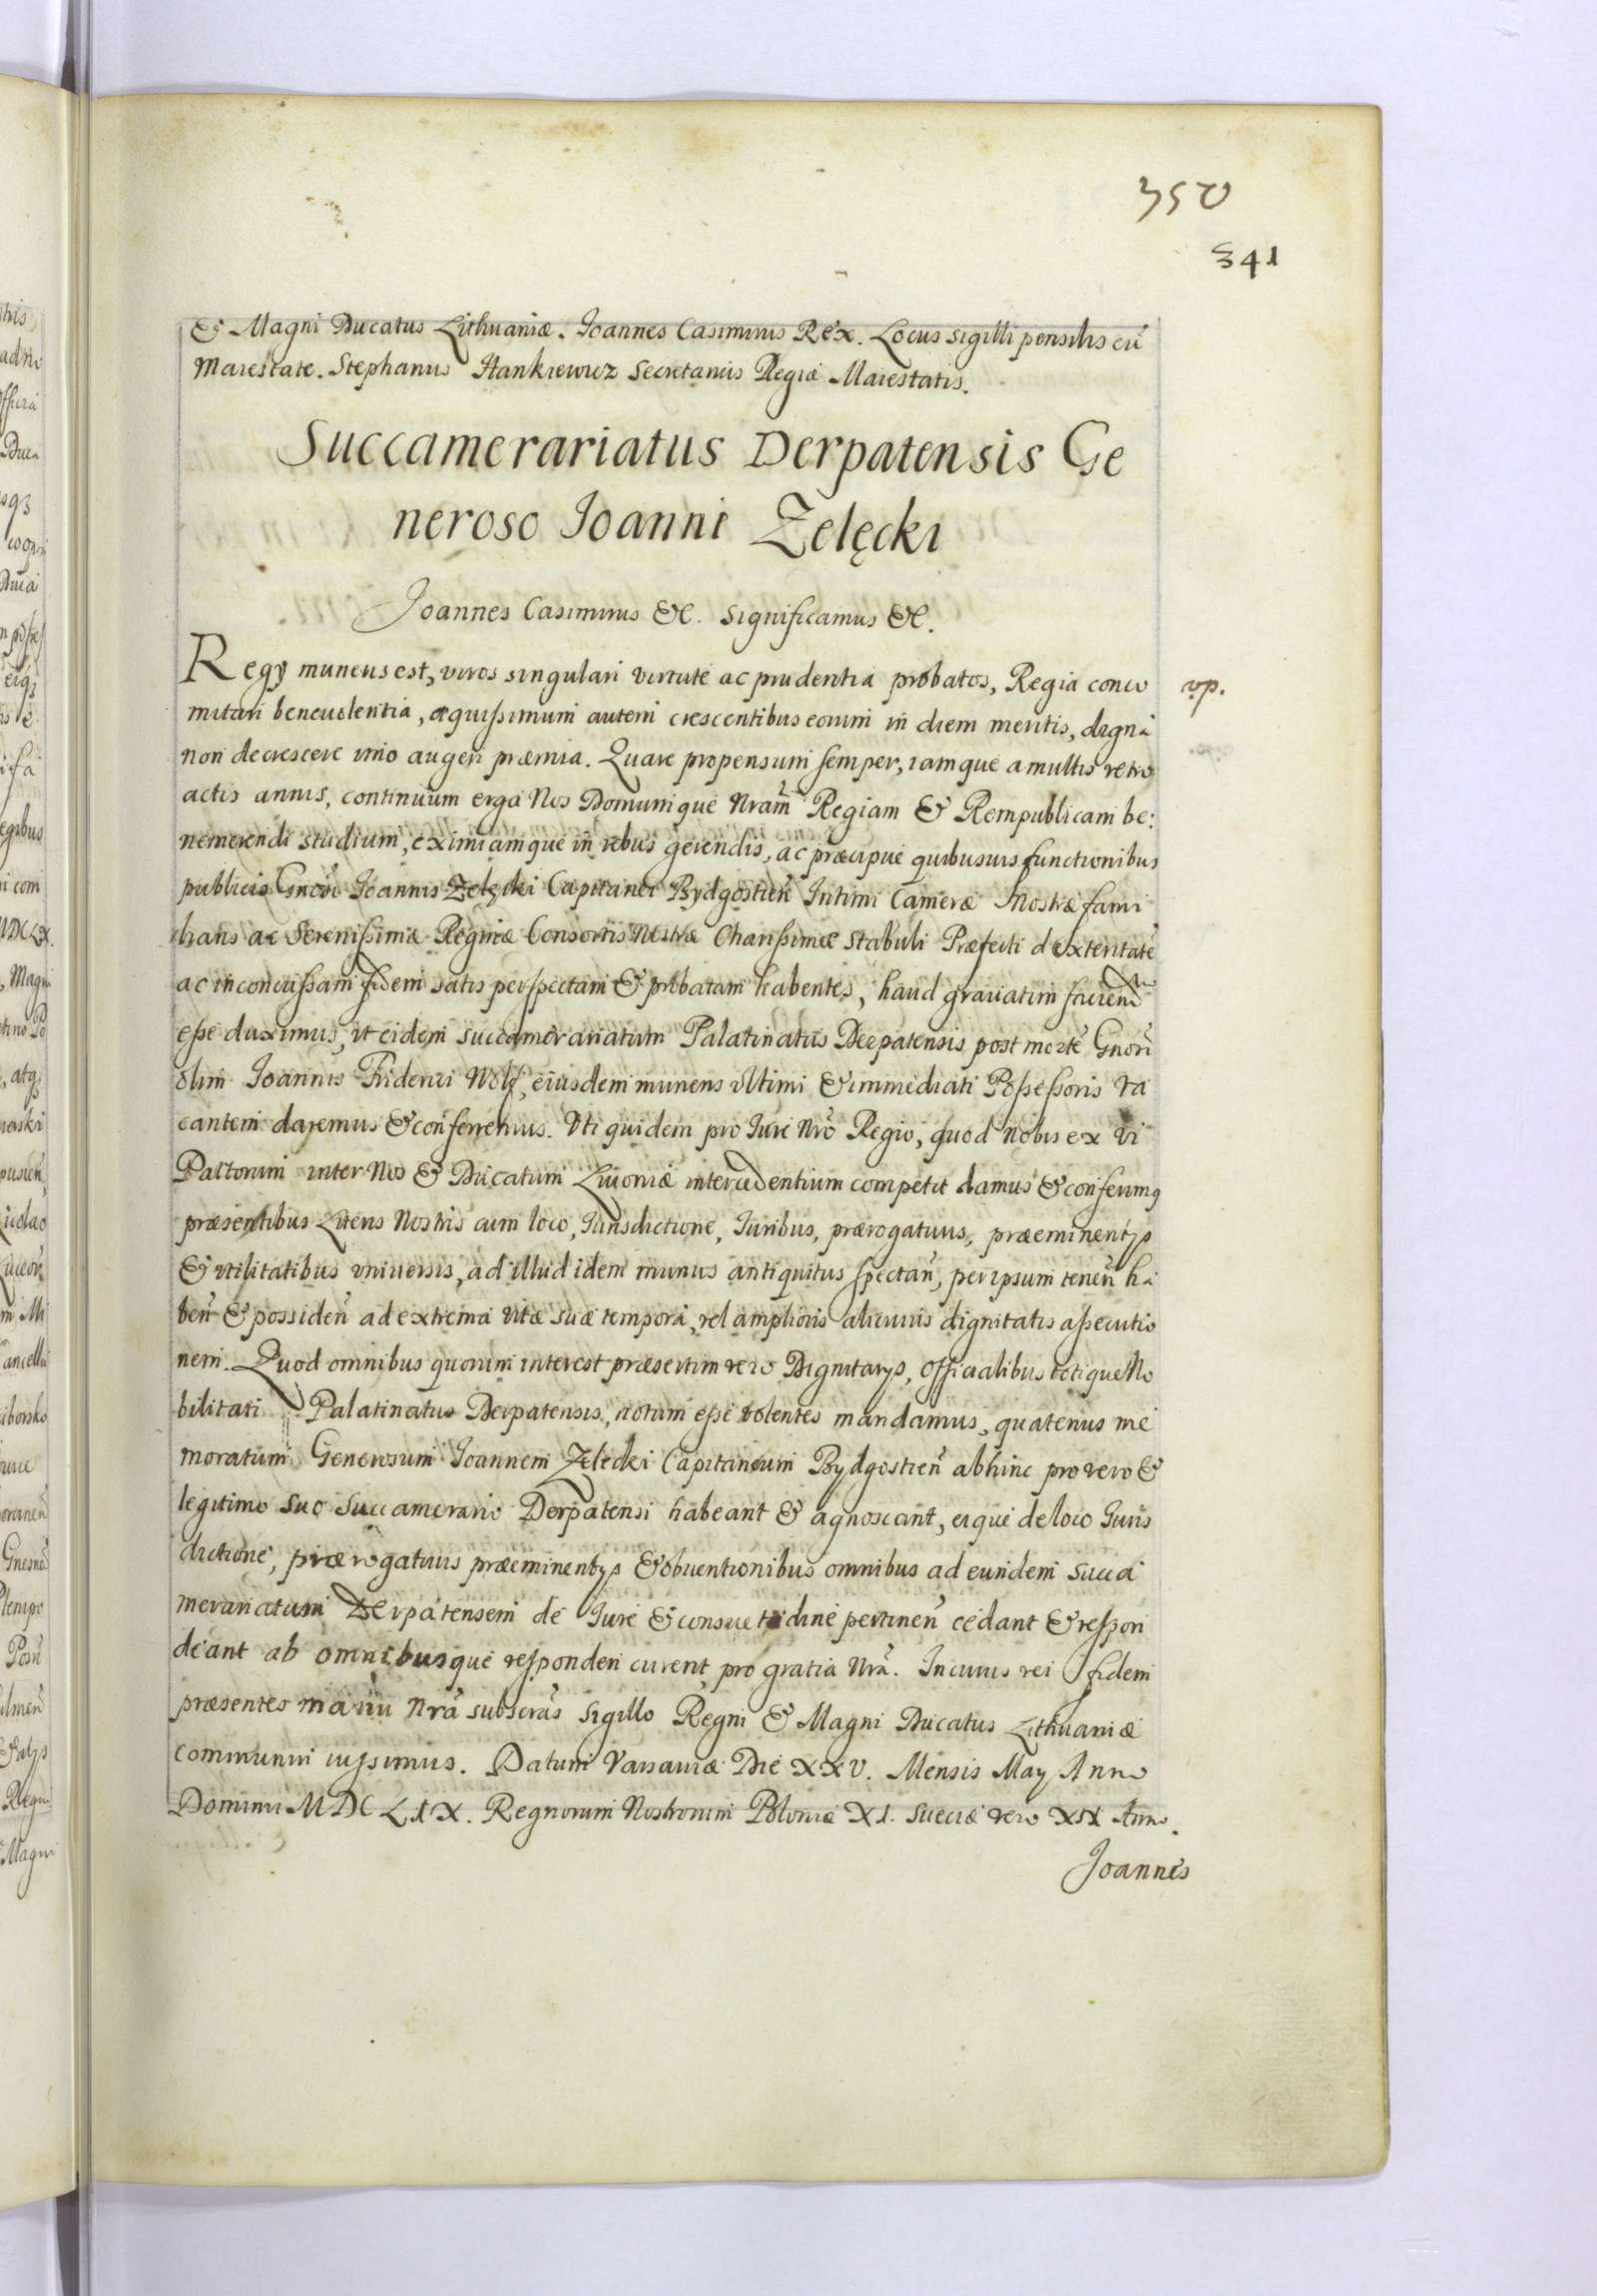 350
341
& Magni Ducatus Lithuaniæ. Joannes Casimirus Rex. Locus sigilli pensilis cũ
Maiestate. Stephanus Hankiewicz Secretarius Regiæ Maiestatis.
Succamerariatus Derpatensis Ge
neroso Joanni Zelęcki
Joannes Casimirus &c. Significamus &c.
Regij muneris est, viros singulari virtute ac prudentia probatos, Regia conco
vp.
mitari beneuolentia, æquissimum autem crescentibus eorum in diem meritis, digna
non decrescere imo augeri præmia. Quare propensum semper, iamque a multis retro
actis annis, continuum erga Nos Domumque Nram̃ Regiam & Rempublicam be:
nemerendi studium, eximiamque in rebus gerendis, ac præcipue quibusuis functionibus
publicis Gnosi Joannis Zelęcki Capitanei Bydgostieñ Intimi Cameræ Nostræ fami
liaris ac Serenissimæ Reginæ Consortis Nostræ Charissimæ Stabuli Præfecti dexteritatē
ac inconcussam fidem satis perspectam & probatam habentes, haud grauatim faciend
esse duximus, vt eidem succamerariatum Palatinatus Derpatensis post mortē Gnosi
olim Joannis Friderici Wolf, eiusdem muneris vltimi & immediati Possessoris va
cantem daremus & conferremus. Vti quidem pro Jure Nro Regio, quod Nobis ex vi
Pactorum inter Nos & Ducatum Liuoniæ intercedentium competit damus & conferimq
præsentibus Literis Nostris cum loco, Jurisdictione, Juribus, prærogatiuis, præeminentijs
& vtilitatibus vniuersis, ad illud idem munus antiquitus spectañ, per ipsum teneñ ha
beñ & possideñ ad extrema vitæ suæ tempora, vel amplioris alicuius dignitatis assecutio
nem. Quod omnibus quorum interest præsertim vero Dignitarijs, Officialibus totique No
bilitati Palatinatus Derpatensis, notum esse volentes mandamus, quatenus me
moratum Generosum Joannem Zelęcki Capitaneum Bydgostieñ abhinc pro vero &
legitimo suo Succamerario Derpatensi habeant & agnoscant, eique de loco Juris
dictione, prærogatiuis præeminentijs & obuentionibus omnibus ad eundem Succa
merariatum Derpatensem de Jure & consuetudine pertineñ cedant & respon
deant ab omnibusque responderi curent pro gratia Nrã. In cuius rei fidem
præsentes manu Nrã subscras Sigillo Regni & Magni Ducatus Lithuaniæ
communiri iussimus. Datum Varsauiæ Die XXV. Mensis Maij Anno
Domini MDCLIX. Regnorum Nostrorum Poloniæ XI. Sueciæ vero XII Anno.
Joannes